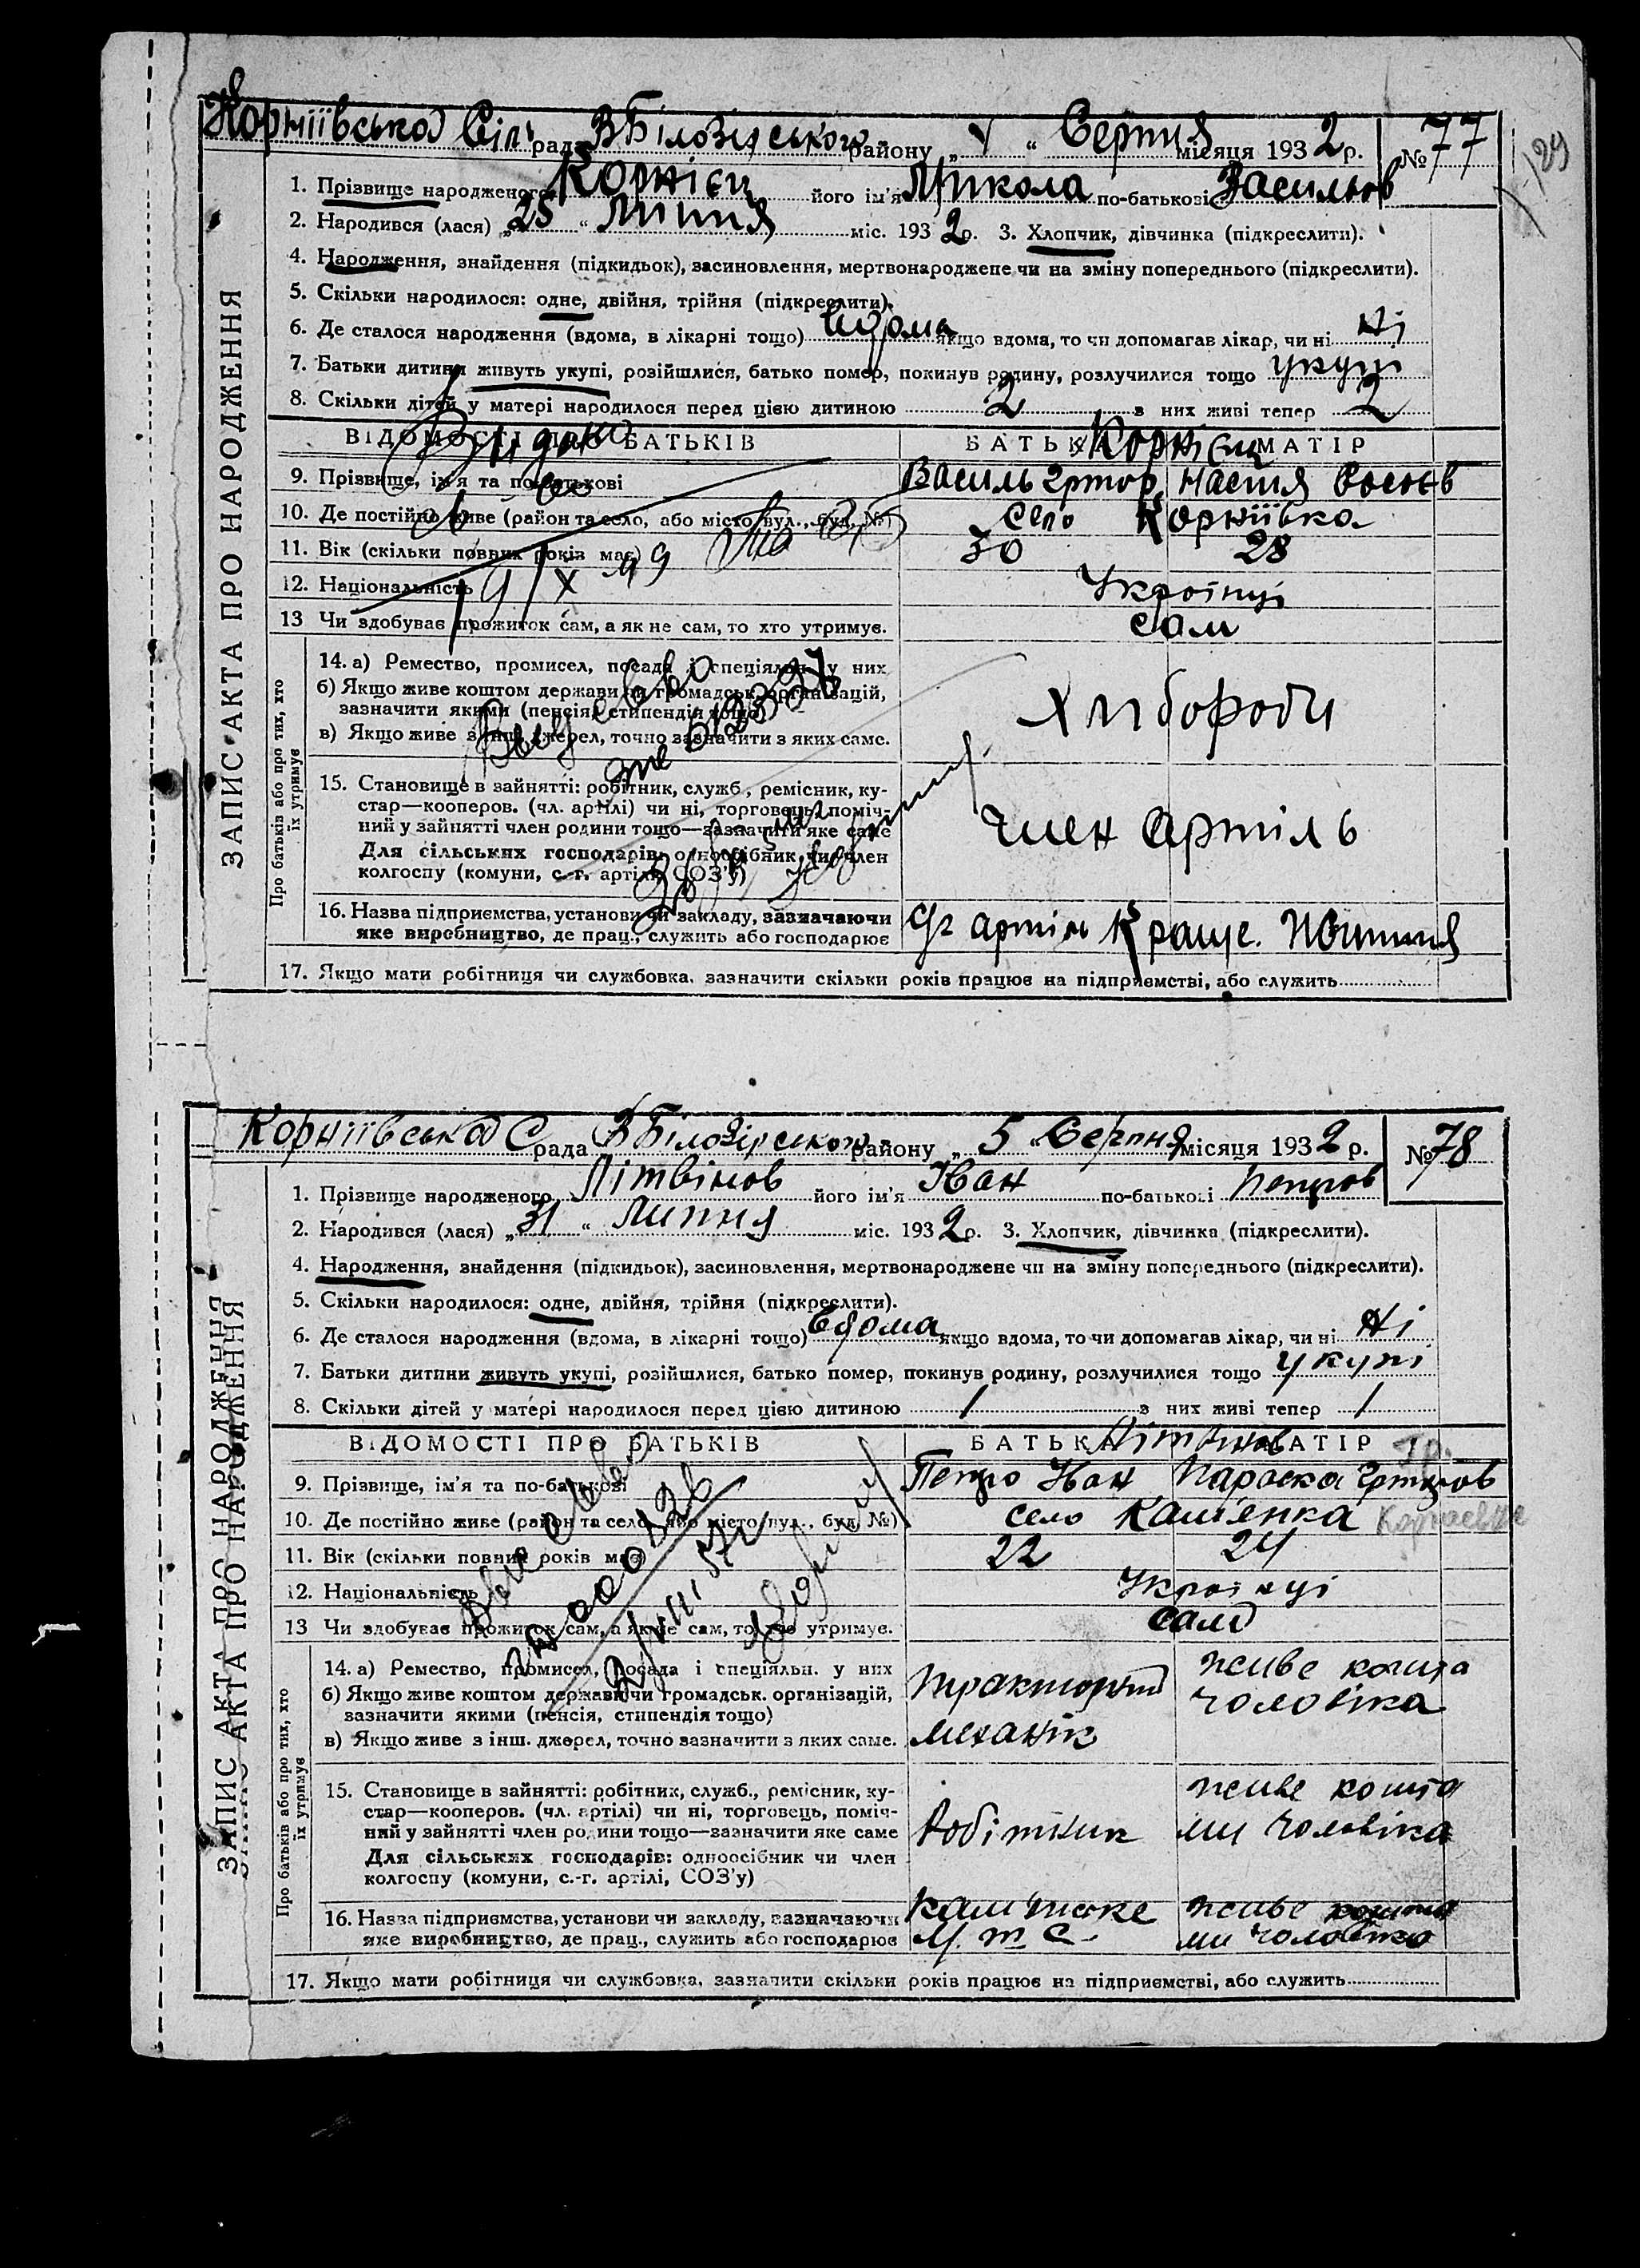 Корніївська Сіль рада В Білозірського району „ 1 “ Серпня місяця 1932 р. № 77
1. Прізвище народженого Корнієц його ім'я Микола по-батькові Васильов
2. Народився (лася) „25 “ Липня міс. 1932 р. 3. Хлопчик, дівчинка (підкреслити).
4. Народження, знайдення (підкидьок), засиновлення, мертвонароджене чи на зміну попереднього (підкреслити).
5. Скільки народилося: одне, двійня, трійня (підкреслити).
6. Де сталося народження (вдома, в лікарні тощо) вдома якщо вдома, то чи допомагав лікар, чи ні Ні
7. Батьки дитини живуть укупі, розійшлися, батько помер, покинув родину, розлучилися тощо укупі
8. Скільки дітей у матері народилося перед цією дитиною 2 з них живі тепер 2
ВІДОМОСТІ ПРО БАТЬКІВ БАТЬКА Корнієц МАТІР
9. Прізвище, ім'я та по-батькові Василь Настія
10. Де постійно живе (район та село, або місто, вул., буд. №) Село Корніївка
11. Вік (скільки повних років має) 30 28
12. Національність Українці
13 Чи здобуває прожиток сам, а як не сам, то хто утримує. Сам
ЗАПИС АКТА ПРО НАРОДЖЕННЯ
Про батьків або про тих, хто їх утримує
14. а) Ремество, промисел, посада і спеціяльн. у них
б) Якщо живе коштом держави чи громадськ. організацій,
зазначити якими (пенсія, стипендія тощо)
в) Якщо живе з інш. джерел, точно зазначити з яких саме.
Хлибороби
15. Становище в зайнятті: робітник, служб., ремісник, ку-
стар—кооперов. (чл. артілі) чи ні, торговець, поміч-
ний у зайнятті член родини тощо—зазначити яке саме
Для сільських господарів: одноосібник чи член
колгоспу (комуни, с.-г. артілі, СОЗ'у)
Член Артіль
16. Назва підприємства, установи чи закладу, зазначаючи
яке виробництво, де прац., служить або господарює
артіль Краще
17. Якщо мати робітниця чи службовка, зазначити скільки років працює на підприємстві, або служить
Корніївська С рада В Білозірського району „ 5 “ Серпня місяця 1932 р. № 78
1. Прізвище народженого Літвінов його ім'я Іван по-батькові Петров
2. Народився (лася) „31 “ Липня міс. 1932 р. 3. Хлопчик, дівчинка (підкреслити).
4. Народження, знайдення (підкидьок), засиновлення, мертвонароджене чи на зміну попереднього (підкреслити).
5. Скільки народилося: одне, двійня, трійня (підкреслити).
6. Де сталося народження (вдома, в лікарні тощо) Вдома якщо вдома, то чи допомагав лікар, чи ні Ні
7. Батьки дитини живуть укупі, розійшлися, батько помер, покинув родину, розлучилися тощо укупі
8. Скільки дітей у матері народилося перед цією дитиною 1 з них живі тепер 1
ВІДОМОСТІ ПРО БАТЬКІВ БАТЬКА Літвінов МАТІР
9. Прізвище, ім'я та по-батькові Петро Іван Параска
10. Де постійно живе (район та село, або місто, вул., буд. №) село Кам'енка
11. Вік (скільки повних років має) 22 24
12. Національність Українці
13 Чи здобуває прожиток сам, а як не сам, то хто утримує. сам
ЗАПИС АКТА ПРО НАРОДЖЕННЯ
Про батьків або про тих, хто їх утримує
14. а) Ремество, промисел, посада і спеціяльн. у них
б) Якщо живе коштом держави чи громадськ. організацій,
зазначити якими (пенсія, стипендія тощо)
в) Якщо живе з інш. джерел, точно зазначити з яких саме.
механік
живе кошта
чоловіка
15. Становище в зайнятті: робітник, служб., ремісник, ку-
стар—кооперов. (чл. артілі) чи ні, торговець, поміч-
ний у зайнятті член родини тощо—зазначити яке саме
Для сільських господарів: одноосібник чи член
колгоспу (комуни, с.-г. артілі, СОЗ'у)
Робітник
живе кошта
ми чоловіка
16. Назва підприємства, установи чи закладу, зазначаючи
яке виробництво, де прац., служить або господарює
М. т. С.
живе кошта
ми чоловіка
17. Якщо мати робітниця чи службовка, зазначити скільки років працює на підприємстві, або служить